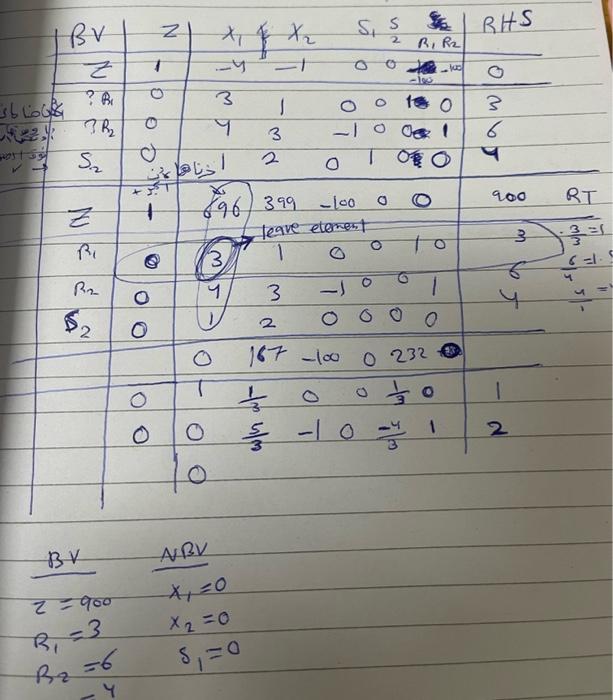 BV Z X₁ X₂ S₁ S₂ R₁ R₂ RHS
Z 1 -4 -1 0 0 -100 -100 0
? R₁ 0 3 1 0 0 1 0 3
? R₂ 0 4 3 -1 0 0 1 6
S₂ 0 1 2 0 1 0 0 4
Z 1 696 399 -100 0 0 900 RT
leave element
R₁ 0 3 1 0 0 1 0 3 3/3=1
R₂ 0 4 3 -1 0 0 1 6 6/4=1.5
S₂ 0 1 2 0 0 0 0 4 4/1=
0 167 -100 0 232
0 1 1/3 0 0 1/3 0 1
0 0 5/3 -1 0 -4/3 1 2
0
BV NBV
Z = 900 X₁ = 0
R₁ = 3 X₂ = 0
R₂ = 6 S₁ = 0
= 4